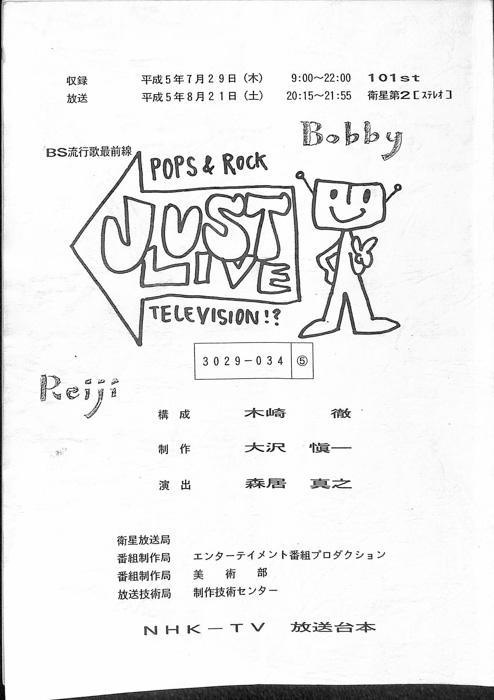 収録 平成5年7月29日（木） 9:00〜22:00 101st
放送 平成5年8月21日（土） 20:15〜21:55 衛星第2［ステレオ］
Bobby
BS流行歌最前線
POPS & ROCK
JUST
LIVE
TELEVISION!?
3029-034 ⑤
Reiji
構成 木崎 徹
制作 大沢 愼一
演出 森居 真之
衛星放送局
番組制作局 エンターテイメント番組プロダクション
番組制作局 美術部
放送技術局 制作技術センター
NHK－TV 放送台本